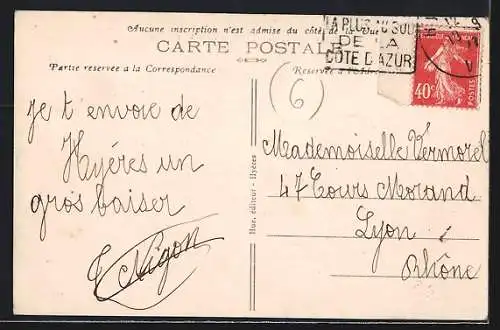 Aucune inscription n'est admise du côté de la Vue
CARTE POSTALE
Partie réservée a la Correspondance
Réservée a
LA PLUS AU SUD
DE LA
COTE D'AZUR
40c
POSTES
(6)
je t envoie de
Hyéres un
gros baiser
E Nigon
Hué, éditeur - Hyères
Mademoiselle Vermorel
47 Cours Morand
Lyon
Rhône